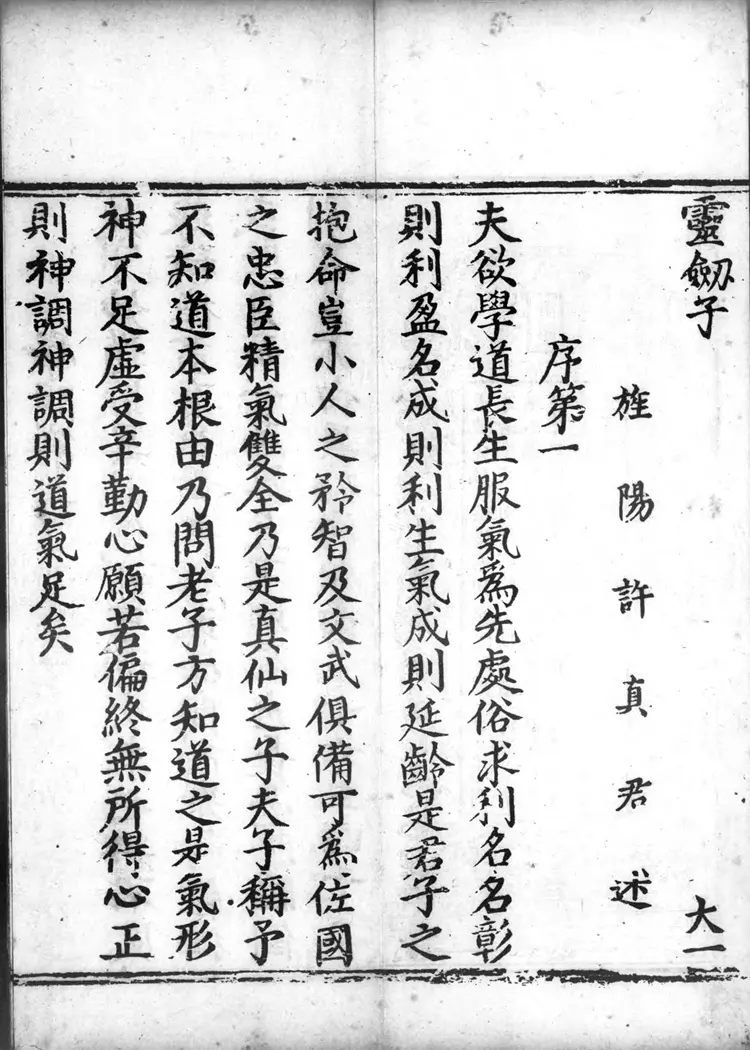 靈劔子
大一
旌陽許真君述
序第一
夫欲學道長生服氣爲先處俗求利名名彰
則利盈名成則利生氣成則延齡是君子之
抱命豈小人之矜智及文武俱備可爲佐國
之忠臣精氣雙全乃是真仙之子夫子稱予
不知道本根由乃問老子方知道之是氣形
神不足虛受辛勤心願若偏終無所得心正
則神調神調則道氣足矣